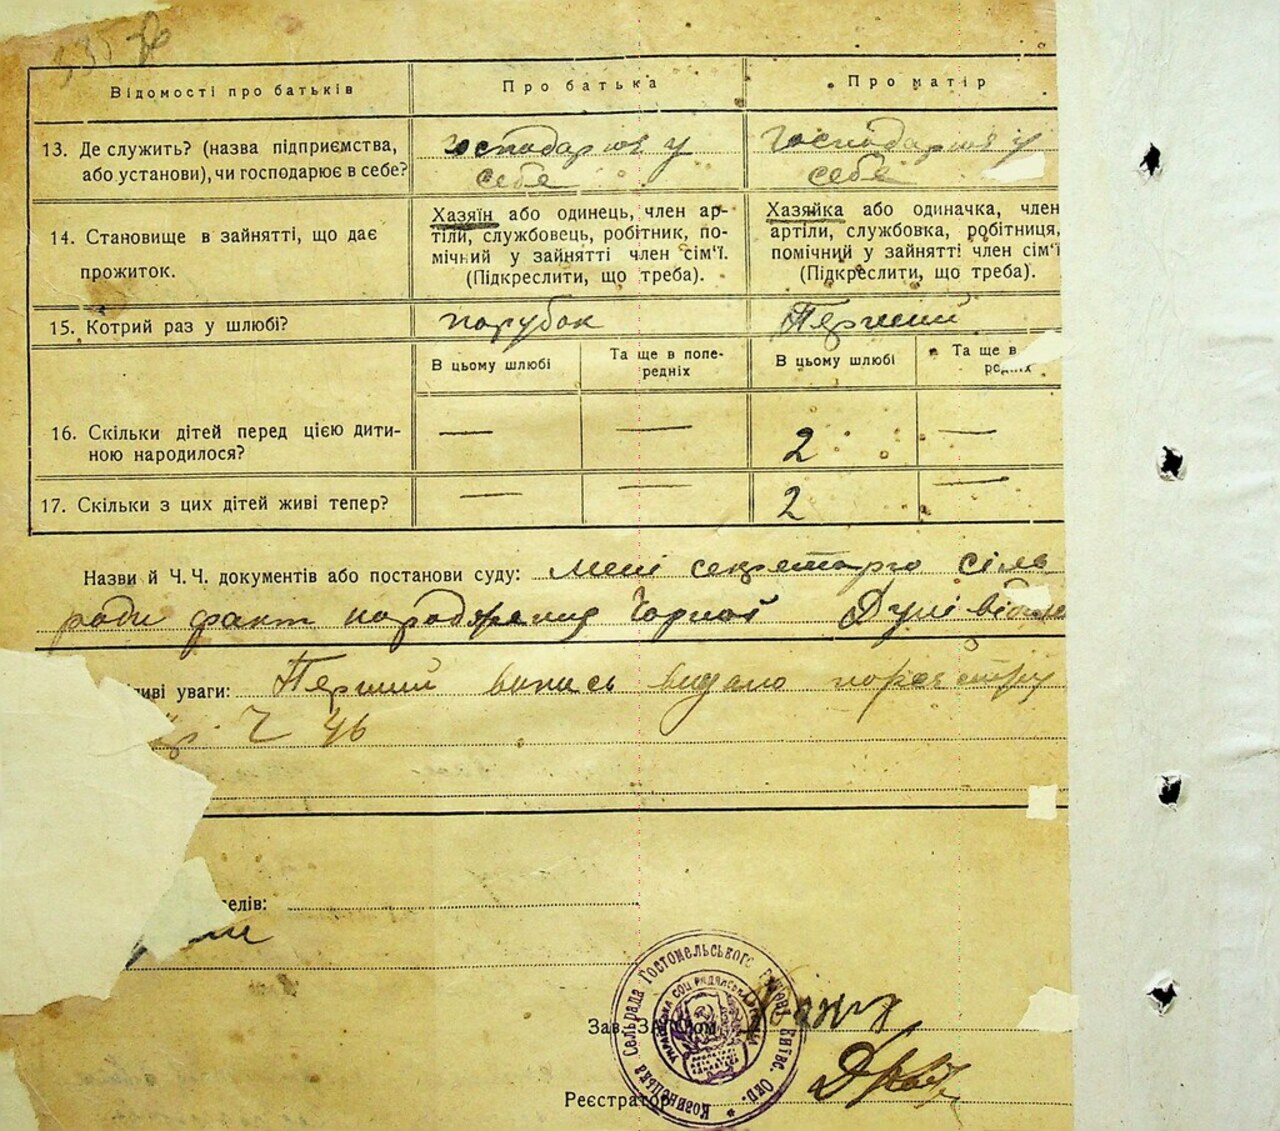 535
Відомості про батьків
Про батька
Про матір
13. Де служить? (назва підприємства,
або установи), чи господарює в себе?
господарює у
себе
господарює у
себе
14. Становище в зайнятті, що дає
прожиток.
Хазяїн або одинець, член ар-
тіли, службовець, робітник, по-
мічний у зайнятті член сім'ї.
(Підкреслити, що треба).
Хазяйка або одиначка, член
артіли, службовка, робітниця,
помічний у зайнятті член сім'ї
(Підкреслити, що треба).
15. Котрий раз у шлюбі?
парубок
Перший
В цьому шлюбі
Та ще в попе-
редніх
В цьому шлюбі
Та ще в
редніх
16. Скільки дітей перед цією дити-
ною народилося?
—
—
2
—
17. Скільки з цих дітей живі тепер?
—
—
2
—
Назви й Ч. Ч. документів або постанови суду: мені секретарю сіль
ради факт народження Чорної
иві уваги: Перший випись видано
Ч 46
елів:
Козинецька Сельрада Гостомельського району Київс. Окр.
Українська Соц Радянська
Зав. ЗАГСом
Реєстратор